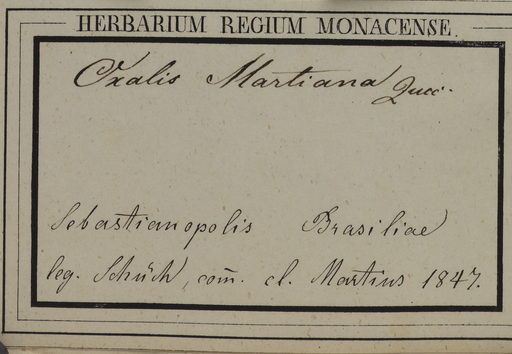 HERBARIUM REGIUM MONACENSE.
Oxalis Martiana Zucc.
Sebastianopolis Brasiliae
leg. Schüch, com̄. cl. Martius 1847.